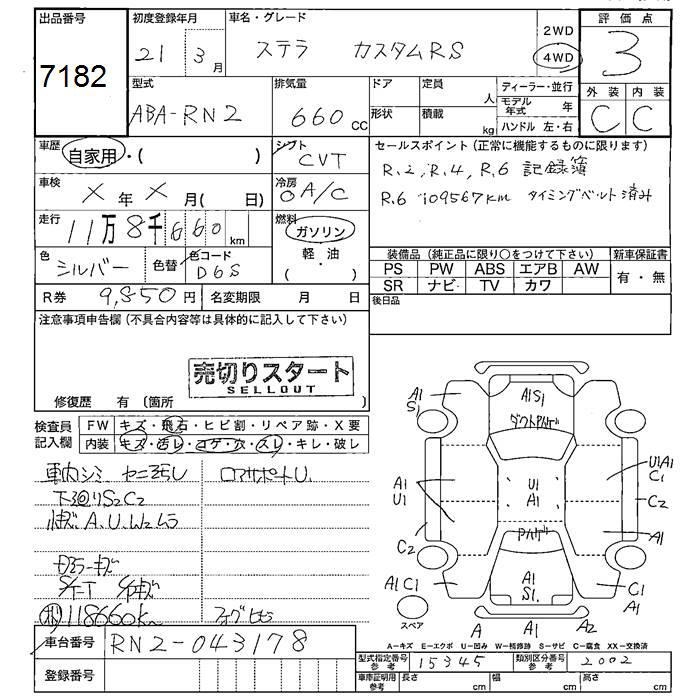 出品番号 初度登録年月 車名・グレード 評価点
7182 21 3月 ステラ カスタムRS 2WD 4WD 3
型式 排気量 ドア 定員 ディーラー・並行 外装 内装
ABA-RN2 660cc 形状 積載 人 kg モデル年式 年 ハンドル 左・右 C C
車歴 自家用・( ) シフト CVT セールスポイント(正常に機能するものに限ります)
R.2, R.4, R.6 記録簿
車検 X年X月( 日) 冷房 A/C R.6 109567km タイミングベルト済み
走行 11万8千660km 燃料 ガソリン
軽・油
・
( )
装備品(純正品に限り○をつけて下さい) 新車保証書
色 シルバー 色替 色コード D6S
PS PW ABS エアB AW 有・無
SR ナビ TV カワ
R券 9,850円 名変期限 月 日 後日品
注意事項申告欄(不具合内容等は具体的に記入して下さい)
売切りスタート
SELLOUT
修復歴 有(箇所 )
検査員記入欄 FW キズ・飛石・ヒビ割・リペア跡・X要
内装 キズ・汚レ・コゲ・穴・スレ・キレ・破レ
車内シミ
下廻りS2C2
A.U.W2
118660km
車台番号 RN2-043178
登録番号
A1
S1
A1S1
A1
A1
U1
U1
A1
U1A1
C1
C2
C2
A1
A1C1
A1
S1
C1
A1
スペア
A A1 A2
A-キズ E-エクボ U-凹み W-補修跡 S-サビ C-腐食 XX-交換済
型式指定番号 参考 15345 類別区分番号 参考 2002
車庫証明用 参考 長さ cm 幅 cm 高さ cm